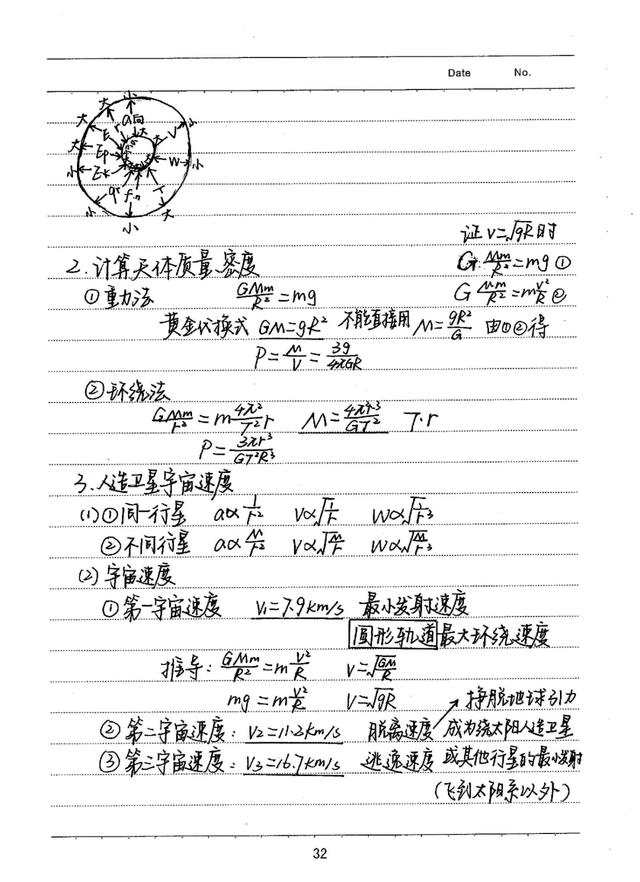 Date No.
小
大 小
大 a向 大 小
E V
大 Ep W 小
小 Ek T
小 qr fn 大
小
证 V=√gR 时
2.计算天体质量.密度 G Mm/R²=mg ①
①重力法 GMm/R²=mg G Mm/R²=m v²/R ②
黄金代换式 GM=gR² 不能直接用 M=gR²/G 由①②得
P=M/V=3g/4πGR
②环绕法
GMm/r²=m 4π²/T² r M=4π²r³/GT² T.r
P=3πr³/GT²R³
3.人造卫星宇宙速度
(1)①同一行星 a∝1/r² V∝√1/r W∝√1/r³
②不同行星 a∝M/r² V∝√M/r W∝√M/r³
(2)宇宙速度
①第一宇宙速度 V₁=7.9km/s 最小发射速度
圆形轨道最大环绕速度
推导: GMm/R²=m V²/R V=√GM/R
mg=m V²/R V=√gR 挣脱地球引力
②第二宇宙速度: V2=11.2km/s 脱离速度 成为绕太阳人造卫星
③第三宇宙速度: V3=16.7km/s 逃逸速度 或其他行星的最小发射
(飞到太阳系以外)
32